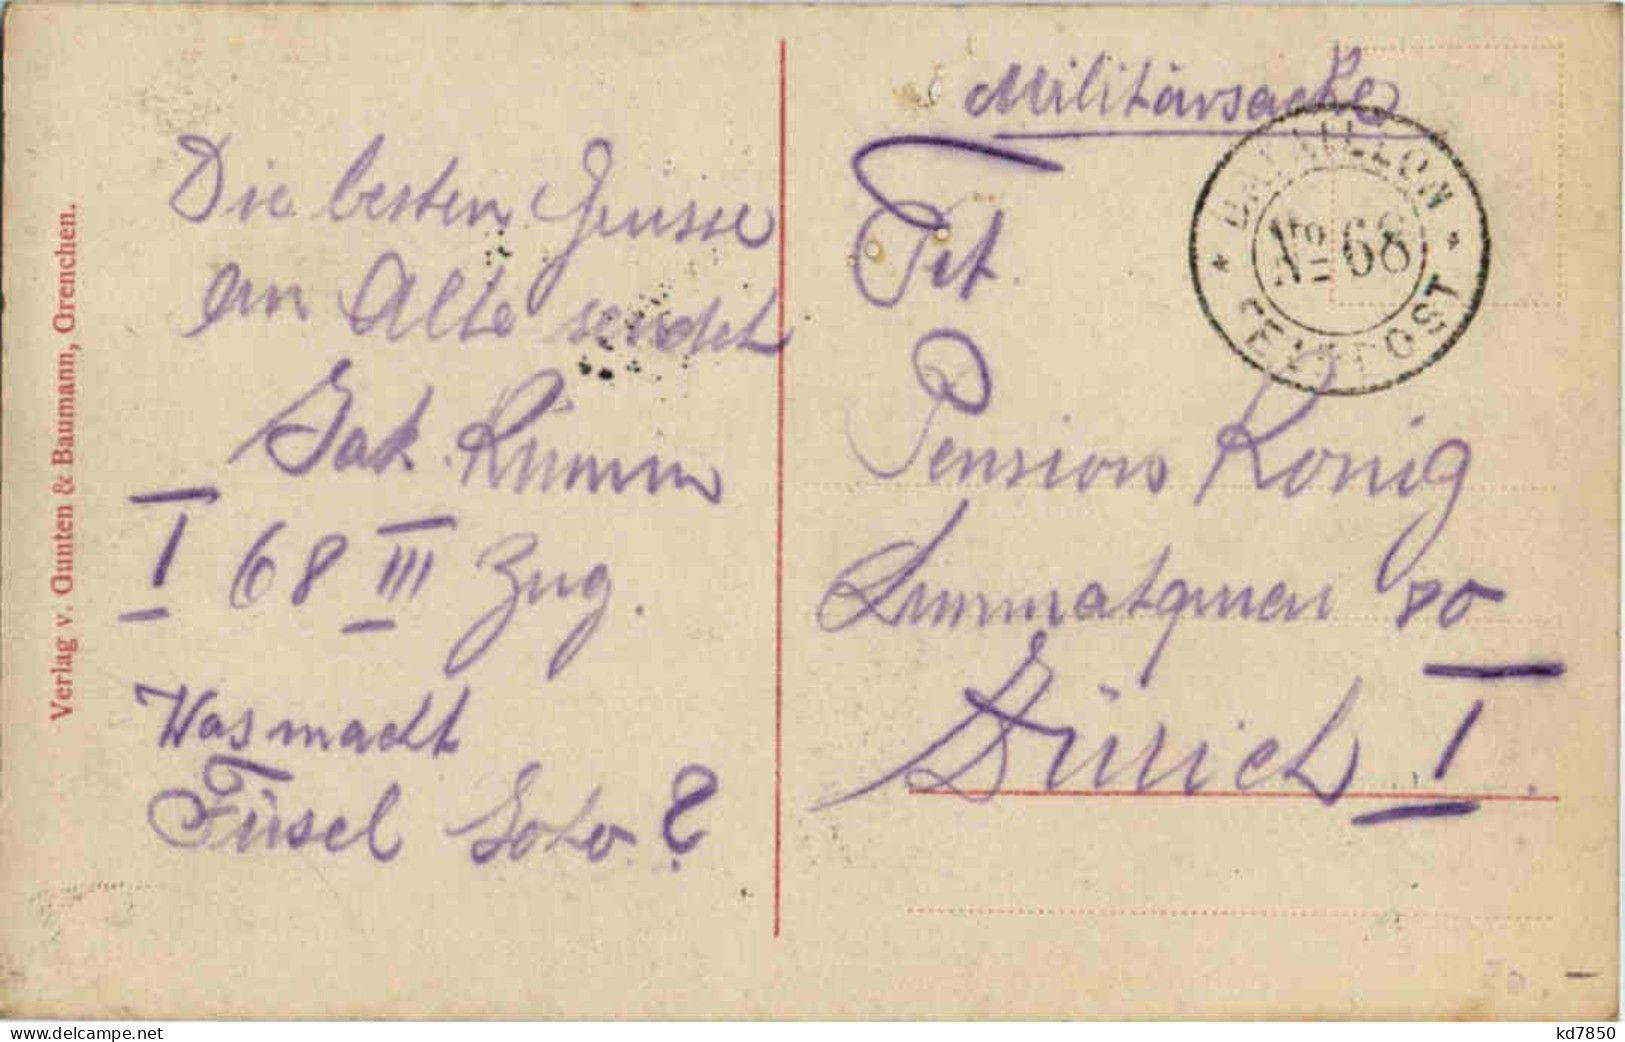 Verlag v. Gunten & Baumann, Grenchen.
Die besten Grüsse
an Alle sendet
Jak.
I 68 III Zug.
Was macht
Füsel ?
Militärsache
BATAILLON
No 68
FELDPOST
Tit.
Pension König
Limmatquai 80
Zürich I.
www.delcampe.net
kd7850